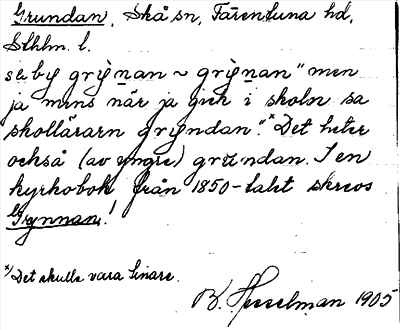 Grundan, Skå sn, Färentuna hd,
Sthlm. l.
sa by grỳn̲an ~ grỳn̲an "men
ja mins när ja gick i skoln sa
skollärarn gryndan".x) Det heter
också (av yngre) grundan. I en
kyrkobok från 1850-talet skrevs
Grynnan!
x) Det skulle vara finare.
B. Hesselman 1905